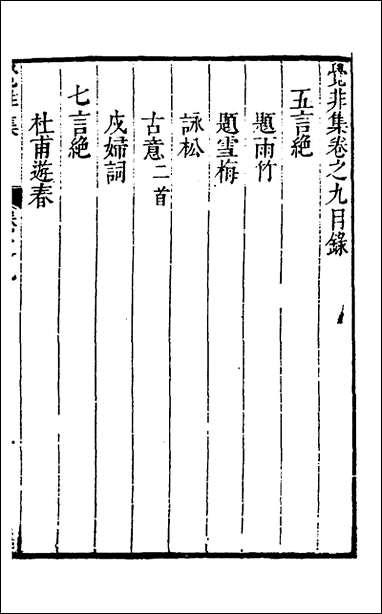 覺非集卷之九目錄
五言絶
題雨竹
題雪梅
詠松
古意二首
戍婦詞
七言絶
杜甫遊春